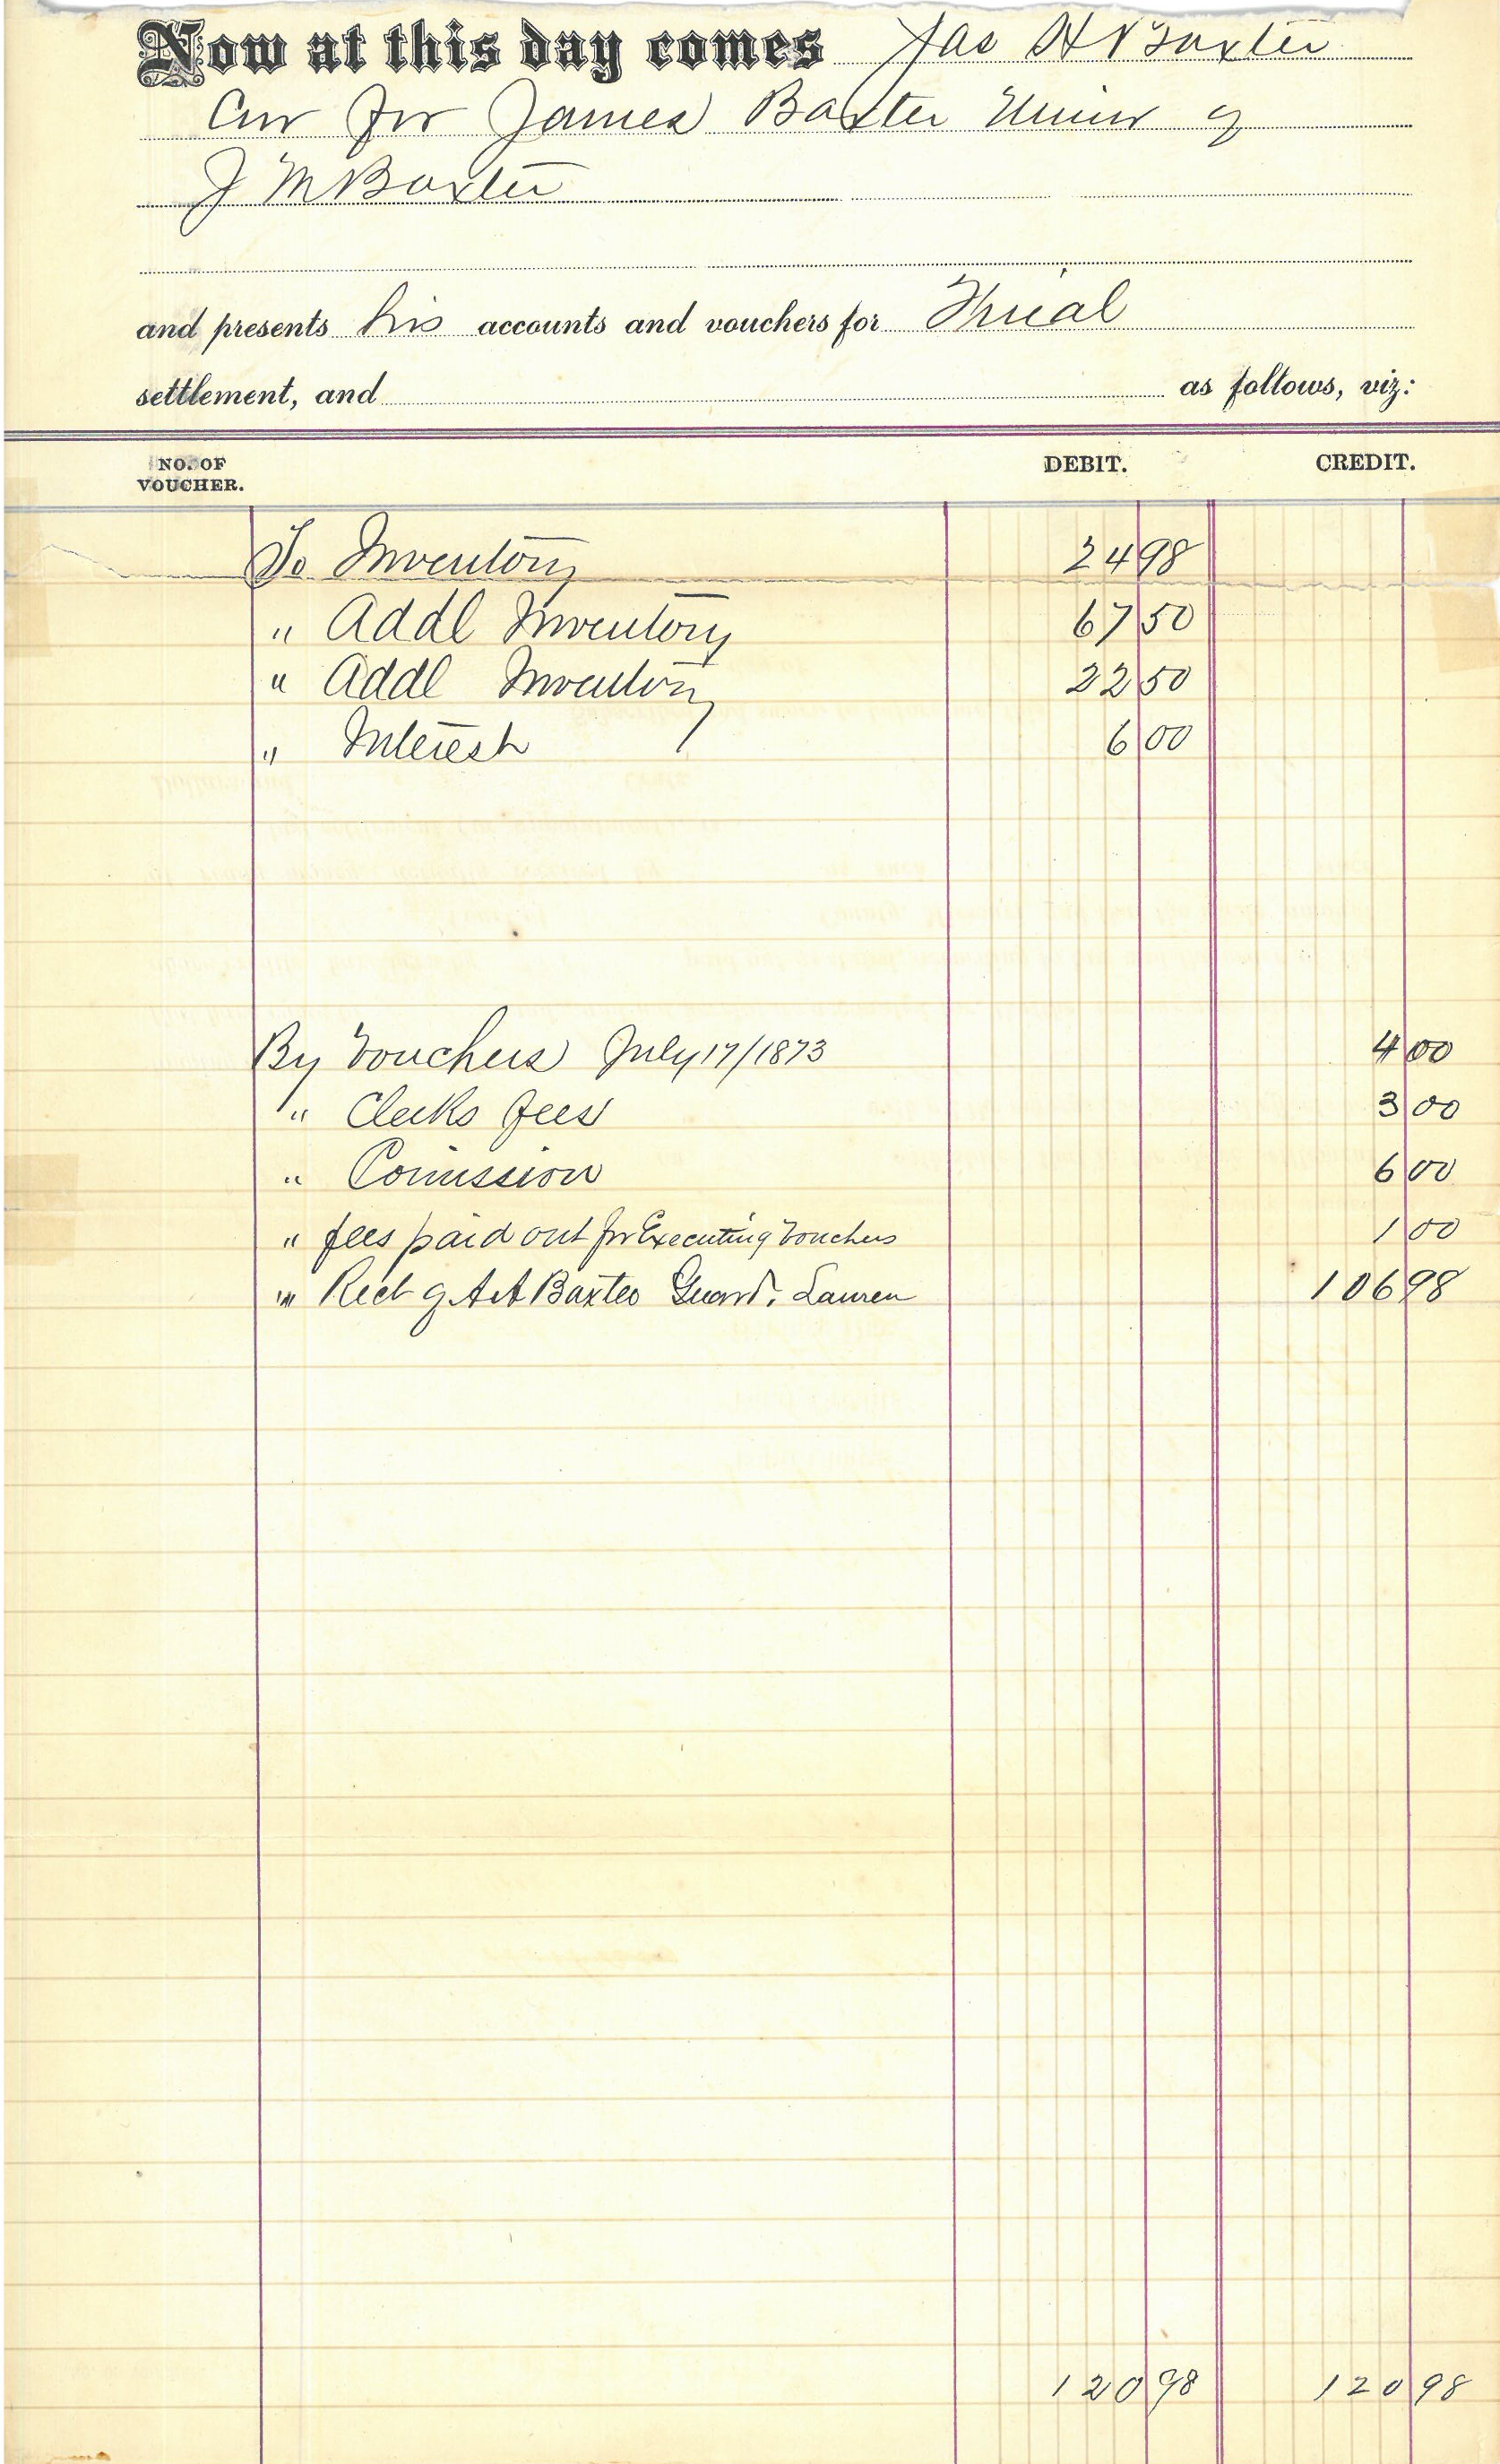 Now at this day comes Jas H Baxter
Cur for James Baxter Minor of
J M Baxter
and presents his accounts and vouchers for Final
settlement, and as follows, viz:
NO. OF VOUCHER. DEBIT. CREDIT.
To Inventory 24 98
" Addl Inventory 67 50
" Addl Inventory 22 50
" Interest 6 00
By Vouchers July 17/1873 4 00
" Clerks fees 3 00
" Comission 6 00
" fees paid out for Executing Vouchers 1 00
" Rect of A A Baxter Guard. 106 98
120 98 120 98